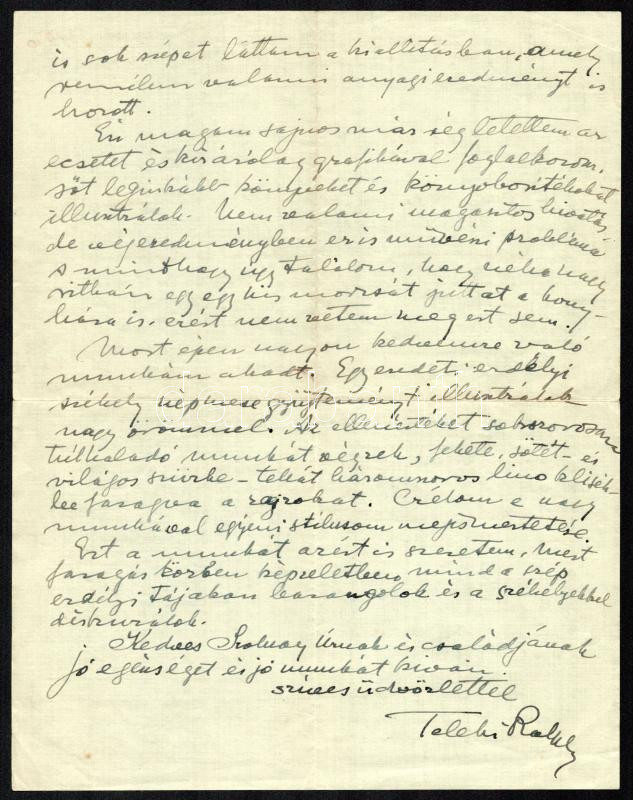 is sok szépet láttam a kiállításban, amely
remélem valami anyagi eredményt is
hozott.
Én magam sajnos már rég letettem az
ecsetet és kizárólag grafikával foglalkozom,
sőt leginkább könyveket és könyvborítékokat
illusztrálok. Nem valami magasztos hivatás,
de végeredményben ez is művészi probléma
s minthogy úgy találom, hogy néha nagy
ritkán egy egy kis morzsát juttat a kony-
hára is, ezért nem vetem meg ezt sem.
Most épen nagyon kedvemre való
munkám akadt. Egy eredeti erdélyi
székely népmesegyűjteményt illusztrálok
nagy örömmel. Az ellenértéket sokszorosan
túlhaladó munkát végzek, fekete, sötét- és
világos szürke - tehát háromszoros lino klisék
kifaragva a rajzokat. Célom e nagy
munkával egyéni stílusom megismertetése.
Ezt a munkát azért is szeretem, mert
faragás közben képzeletben mind a szép
erdélyi tájakon barangolok és a székelyekkel
diskurálok.
Kedves Úrnak és családjának
jó egészséget és jó munkát kíván
szíves üdvözlettel
Teleki Ralph